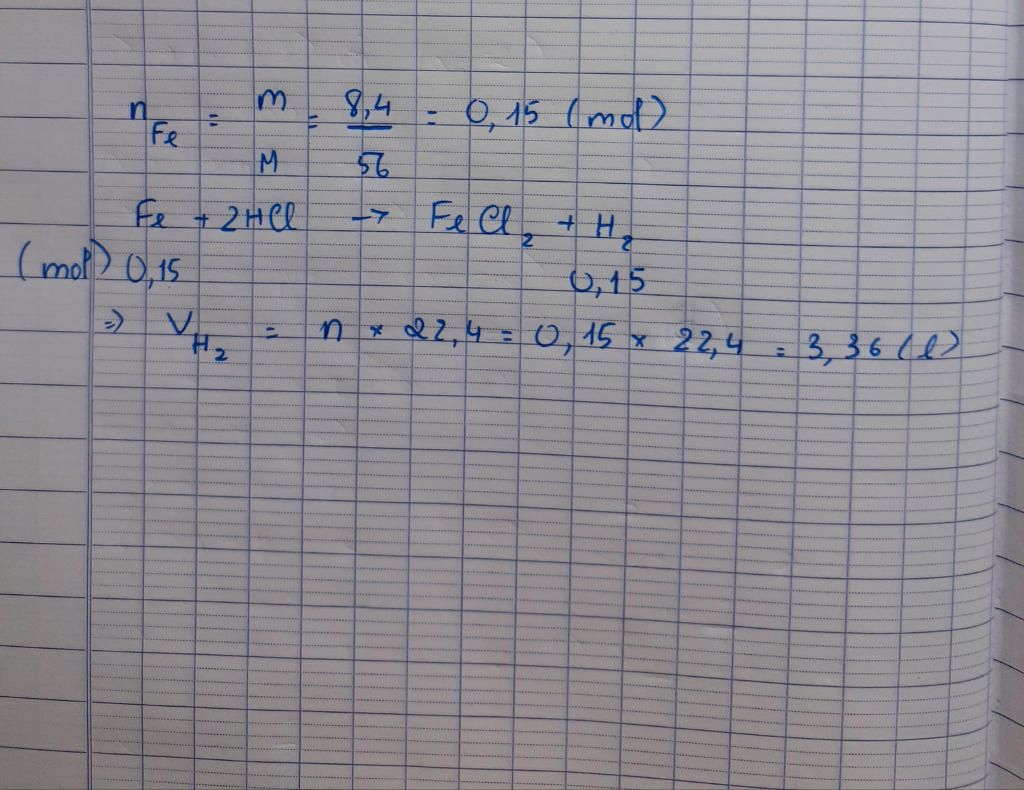 n_Fe = m/M = 8,4/56 = 0,15 (mol)
Fe + 2HCl → FeCl₂ + H₂
(mol) 0,15 0,15
⇒ V_H₂ = n × 22,4 = 0,15 × 22,4 = 3,36 (l)